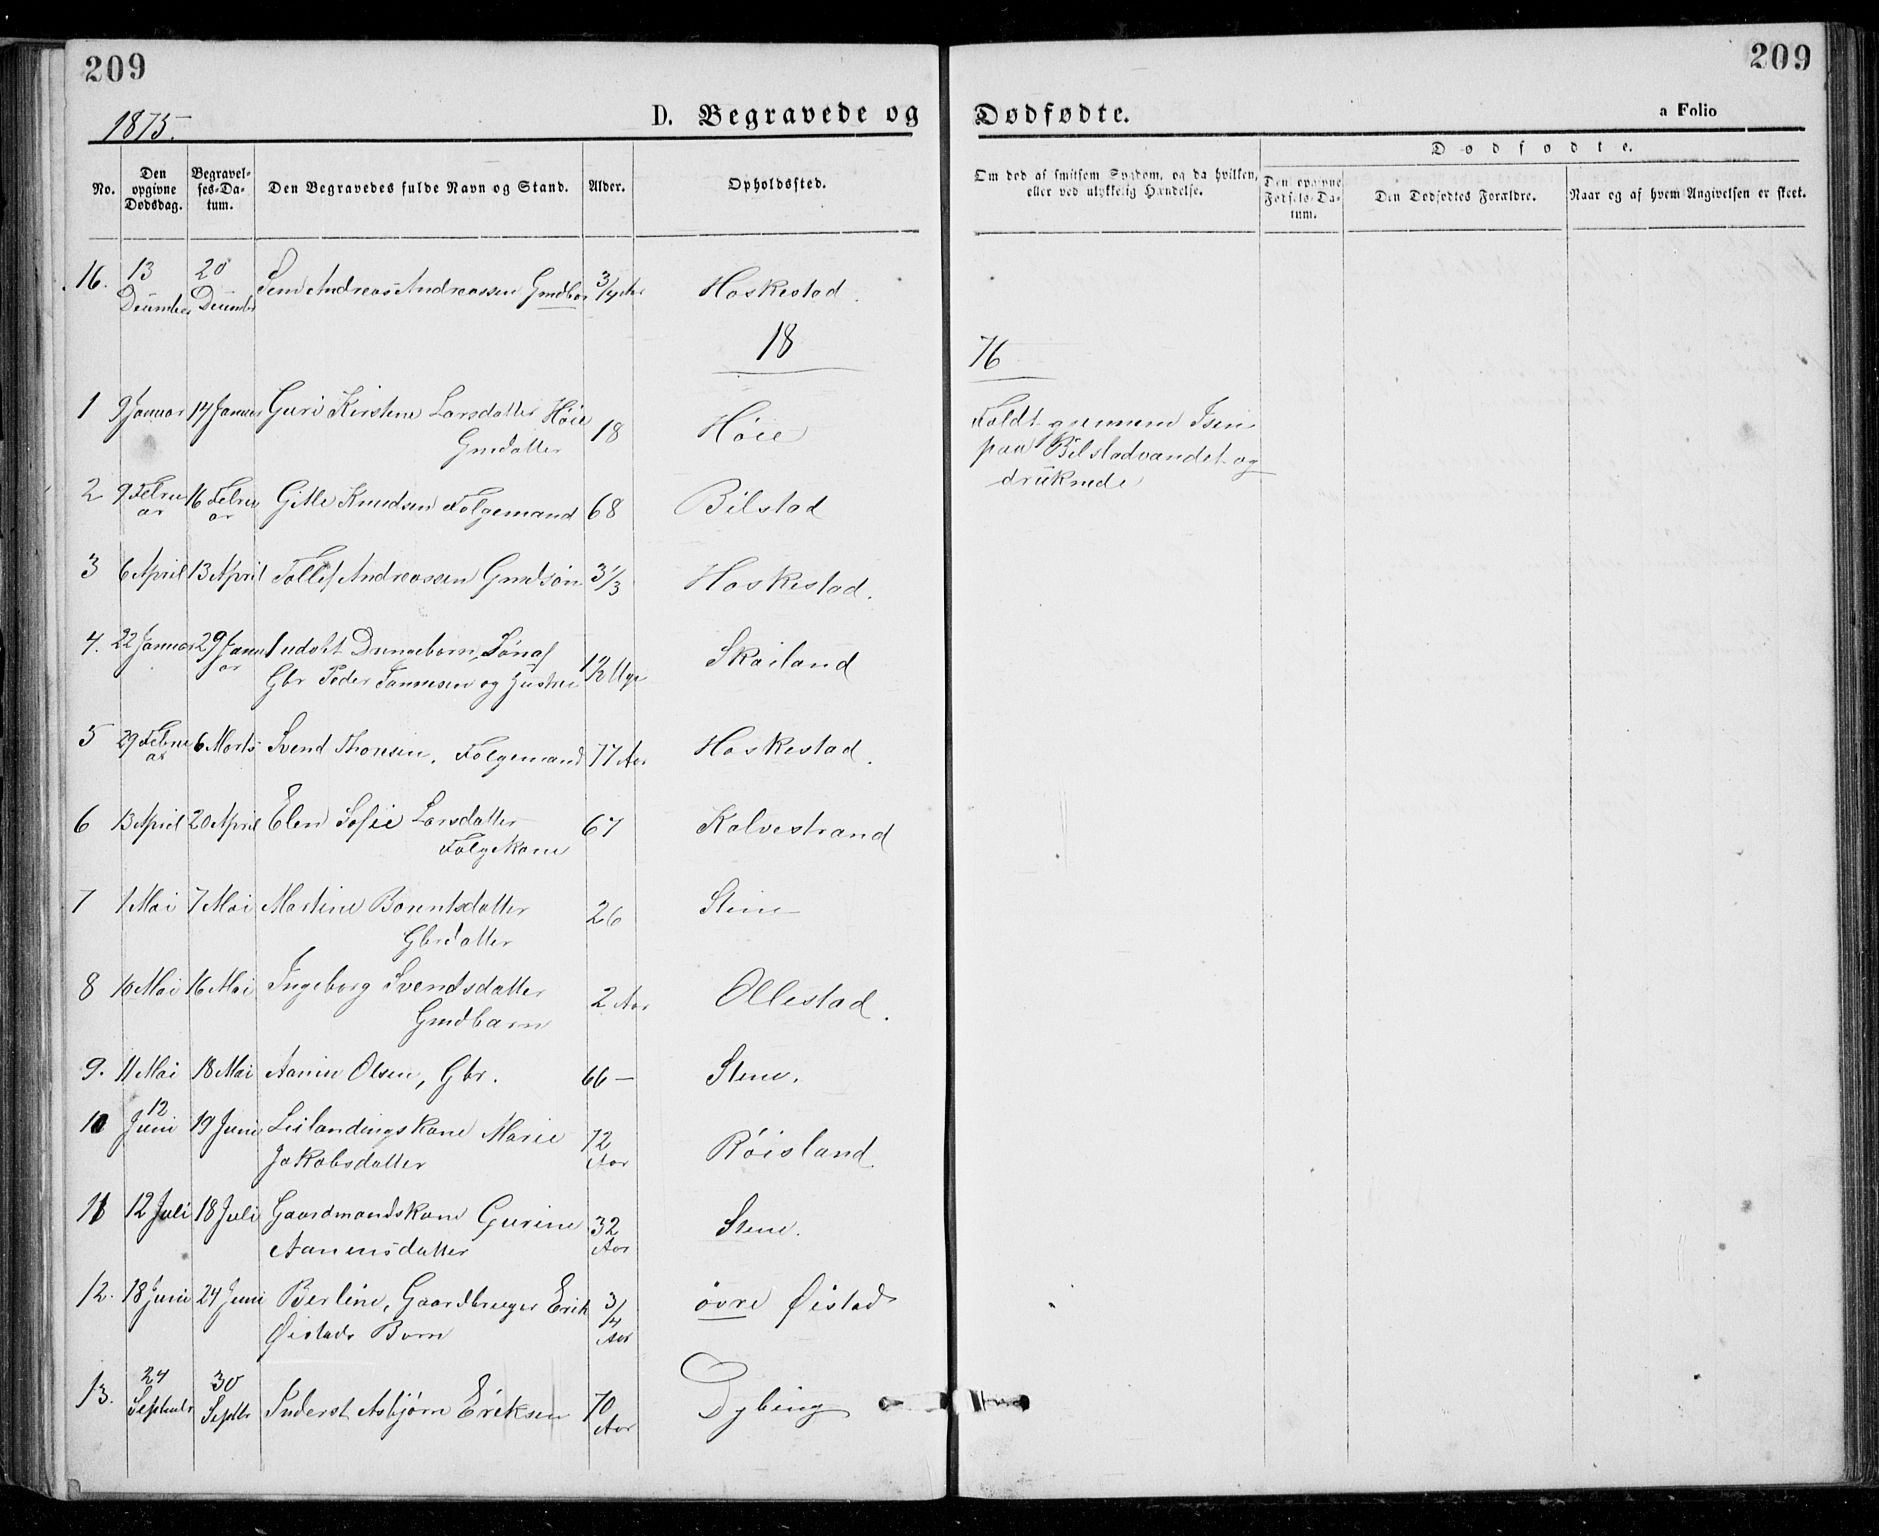 209
209
1875.
D. Begravede og
Dødfødte.
a Folio
No.
Den opgivne Dødsdag.
Begravel-
ses-Da-
tum.
Den Begravedes fulde Navn og Stand.
Alder.
Opholdssted.
Om død af smitsom Sygdom, og da hvilken,
eller ved ulykkelig Hændelse.
Dødfødte.
Den opgivne
Fødsels-Da-
tum.
Den Dødfødtes Forældre.
Naar og af hvem Angivelsen er skeet.
16. 13 December 20 December Andreas Andreassen Gmdbar 3/4 Aar Haskestad.
18 76
1 9 Januar 14 Januar Guri Kirstine Larsdatter Høie
Gmdatter 18 Høie
Faldt gjennem Isen
paa Bilstadvandet og
druknede
2 9 Februar 16 Februar Gitle Knudsen Folgemand 68 Bilstad
3 6 April 13 April Tollef Andreassen Gmdsøn 3 1/3 Haskestad.
4. 22 Januar 29 Januar udøbt Drengebarn, Søn af
Gbr Peder Tønnesen og Hustru 1 1/2 Uge Skailand
5 29 Februar 6 Marts Svend Thorsen, Folgemand 77 Aar Haskestad.
6 13 April 20 April Elen Sofie Larsdatter
Folgekone 67 Kalvestrand
7 1 Mai 7 Mai Martine Berentsdatter
Gbrdatter 26 Stene
8 10 Mai 16 Mai Ingeborg Svendsdatter
Gmdbarn 2 Aar Ollestad.
9. 11 Mai 18 Mai Aanen Olsen, Gbr. 66 — Stene.
10 12 Juni 19 Juni Leilændingskone Marie
Jakobsdatter 72 Aar Røisland
11 12 Juli 18 Juli Gaardmandskone Gurine
Aanensdatter 32 Aar Stene.
12. 18 Juni 24 Juni Berline, Gaardbruger Erik
Øistads Barn 3/4 Aar øvre Øistad
13. 24 September 30 Septbr Inderst Asbjørn Eriksen 70 Aar Dybing